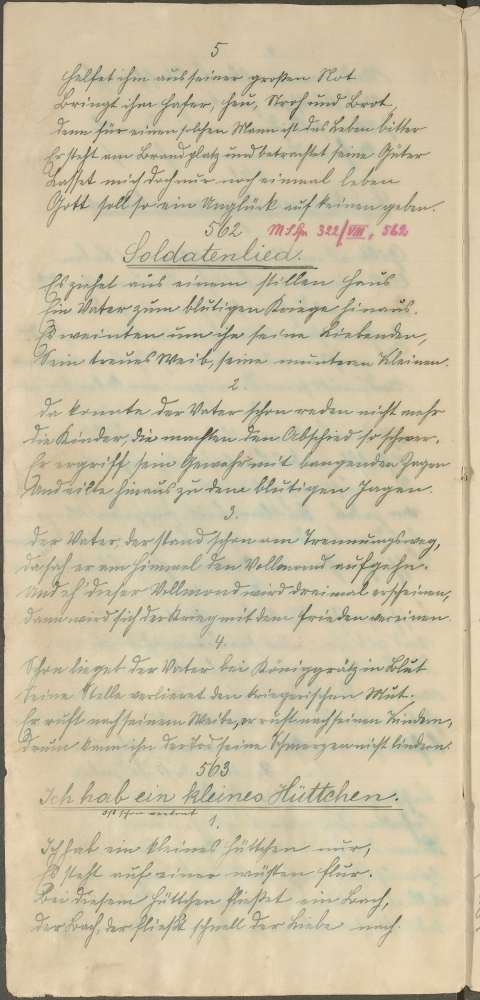 5
Helfet ihm aus seiner großen Not
Bringt ihm Hafer, Heu, Stroh und Brot,
Denn für einen solchen Mann ist das Leben bitter
Er steht am Brandplatz und betrachtet seine Güter
Lasset mich doch nur noch einmal leben
Gott soll so ein Unglück auf keinen geben.
562 322/VIII, 562
Soldatenlied.
Es ziehet aus einem stillen Haus
Ein Vater zum blutigen Kriege hinaus.
Es weinten um ihn seine Liebenden,
Sein treues Weib, seine munteren Kleinen.
2.
Da konnte der Vater schon reden nicht mehr
Die Kinder, die machten den Abschied so schwer.
Er ergriff sein Gewehr mit bangenden Zagen
Und eilte hinaus zu dem blutigen Jagen.
3.
Der Vater, der stand schon am Trennungsweg,
Da sah er am Himmel den Vollmond aufgehn.
Und eh dieser Vollmond wird dreimal erscheinen,
Dann wird sich der Krieg mit dem Frieden vereinen.
4.
Schon lieget der Vater bei Königgrätz in Blut
Seine Stelle verlieret den kriegerischen Mut,
Er ruft nach seinem Weibe, er ruft nach seinen Kindern,
Drum kann ihn der Tod seine Schmerzen nicht lindern.
563
Ich hab ein kleines Hüttchen.
1.
Ich hab ein kleines Hüttchen nur,
Es steht auf einer wüsten Flur.
Bei diesem Hüttchen fließet ein Bach,
Der Bach, der fließt schnell der Liebe nach.